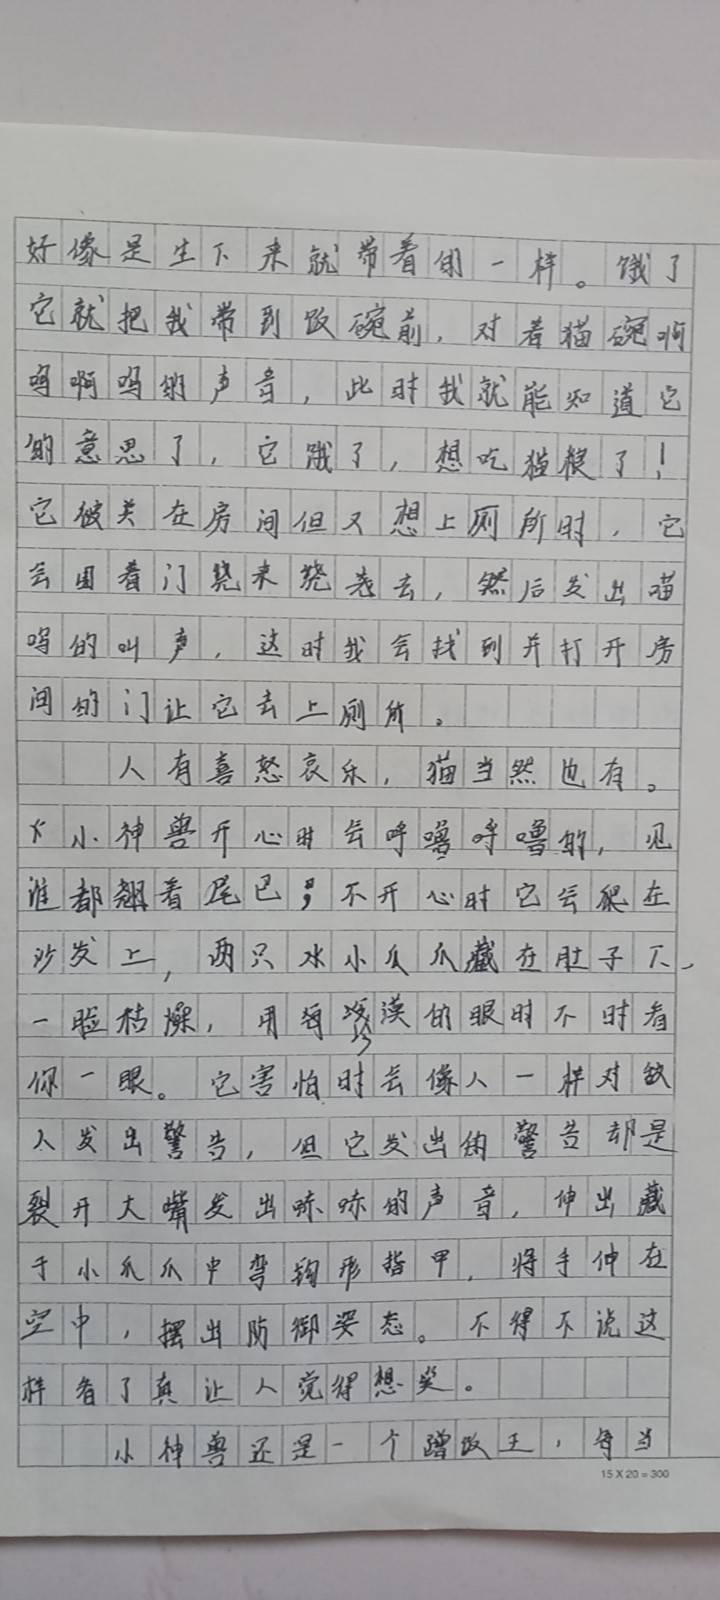 好像是生下来就带着的一样。饿了
它就把我带到饭碗前，对着猫碗啊
呜啊呜的声音，此时我就能知道它
的意思了，它饿了，想吃猫粮了！
它被关在房间但又想上厕所时，它
会围着门绕来绕去，然后发出喵
呜的叫声，这时我会找到并打开房
间的门让它去上厕所。
人有喜怒哀乐，猫当然也有。
小神兽开心时会呼噜呼噜的，见
谁都翘着尾巴；不开心时它会爬在
沙发上，两只小爪爪藏在肚子下，
一脸枯燥，用漠的眼时不时看
你一眼。它害怕时会像人一样对敌
人发出警告，但它发出的警告却是
裂开大嘴发出哧哧的声音，伸出藏
于小爪爪中弯钩形指甲，将手伸在
空中，摆出防御姿态。不得不说这
样看了真让人觉得想笑。
小神兽还是一个蹭饭王，每当
15 X 20 = 300